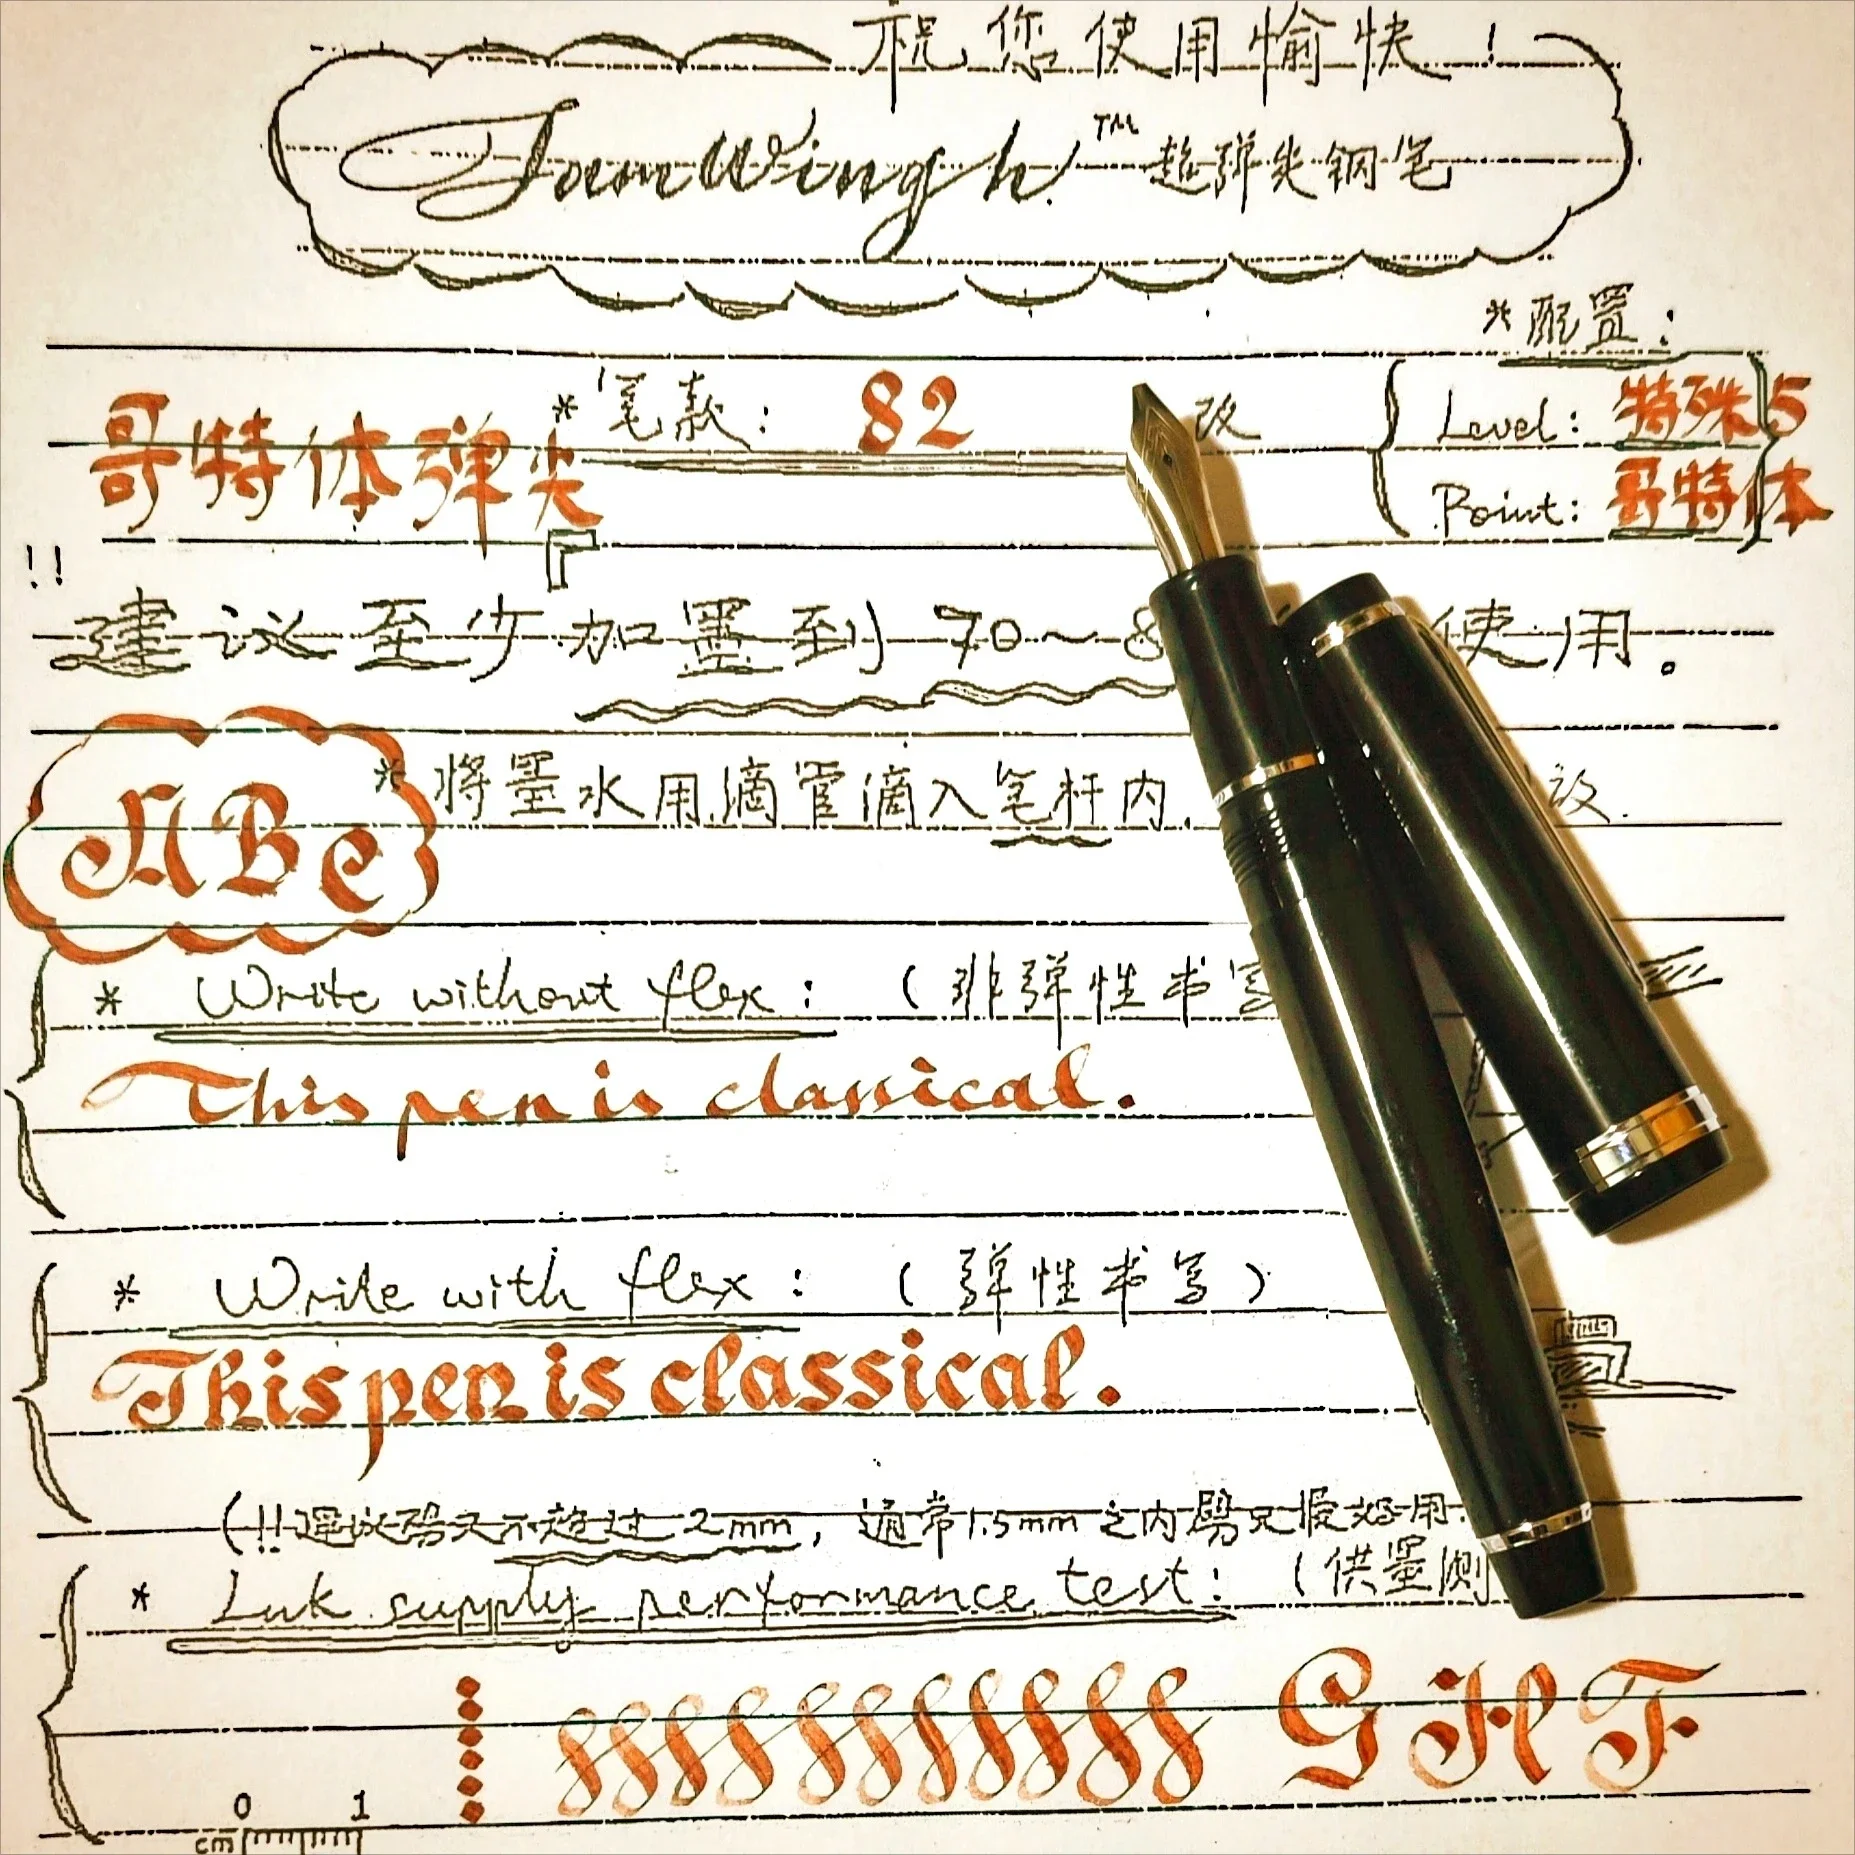 祝您使用愉快!
JamWingh.™ 超弹尖钢笔
*配置:
*笔款: 82 改
Level: 特殊5
哥特体弹尖
Point: 哥特体
!!
建议至少加墨到70~8 使用。
ABC
*将墨水用滴管滴入笔杆内.
* Write without flex: (非弹性书写
This pen is classical.
* Write with flex: (弹性书写)
This pen is classical.
不超过2mm, 通常1.5mm之内
* Ink supply performance test: (供墨测
G H F
0 1
cm